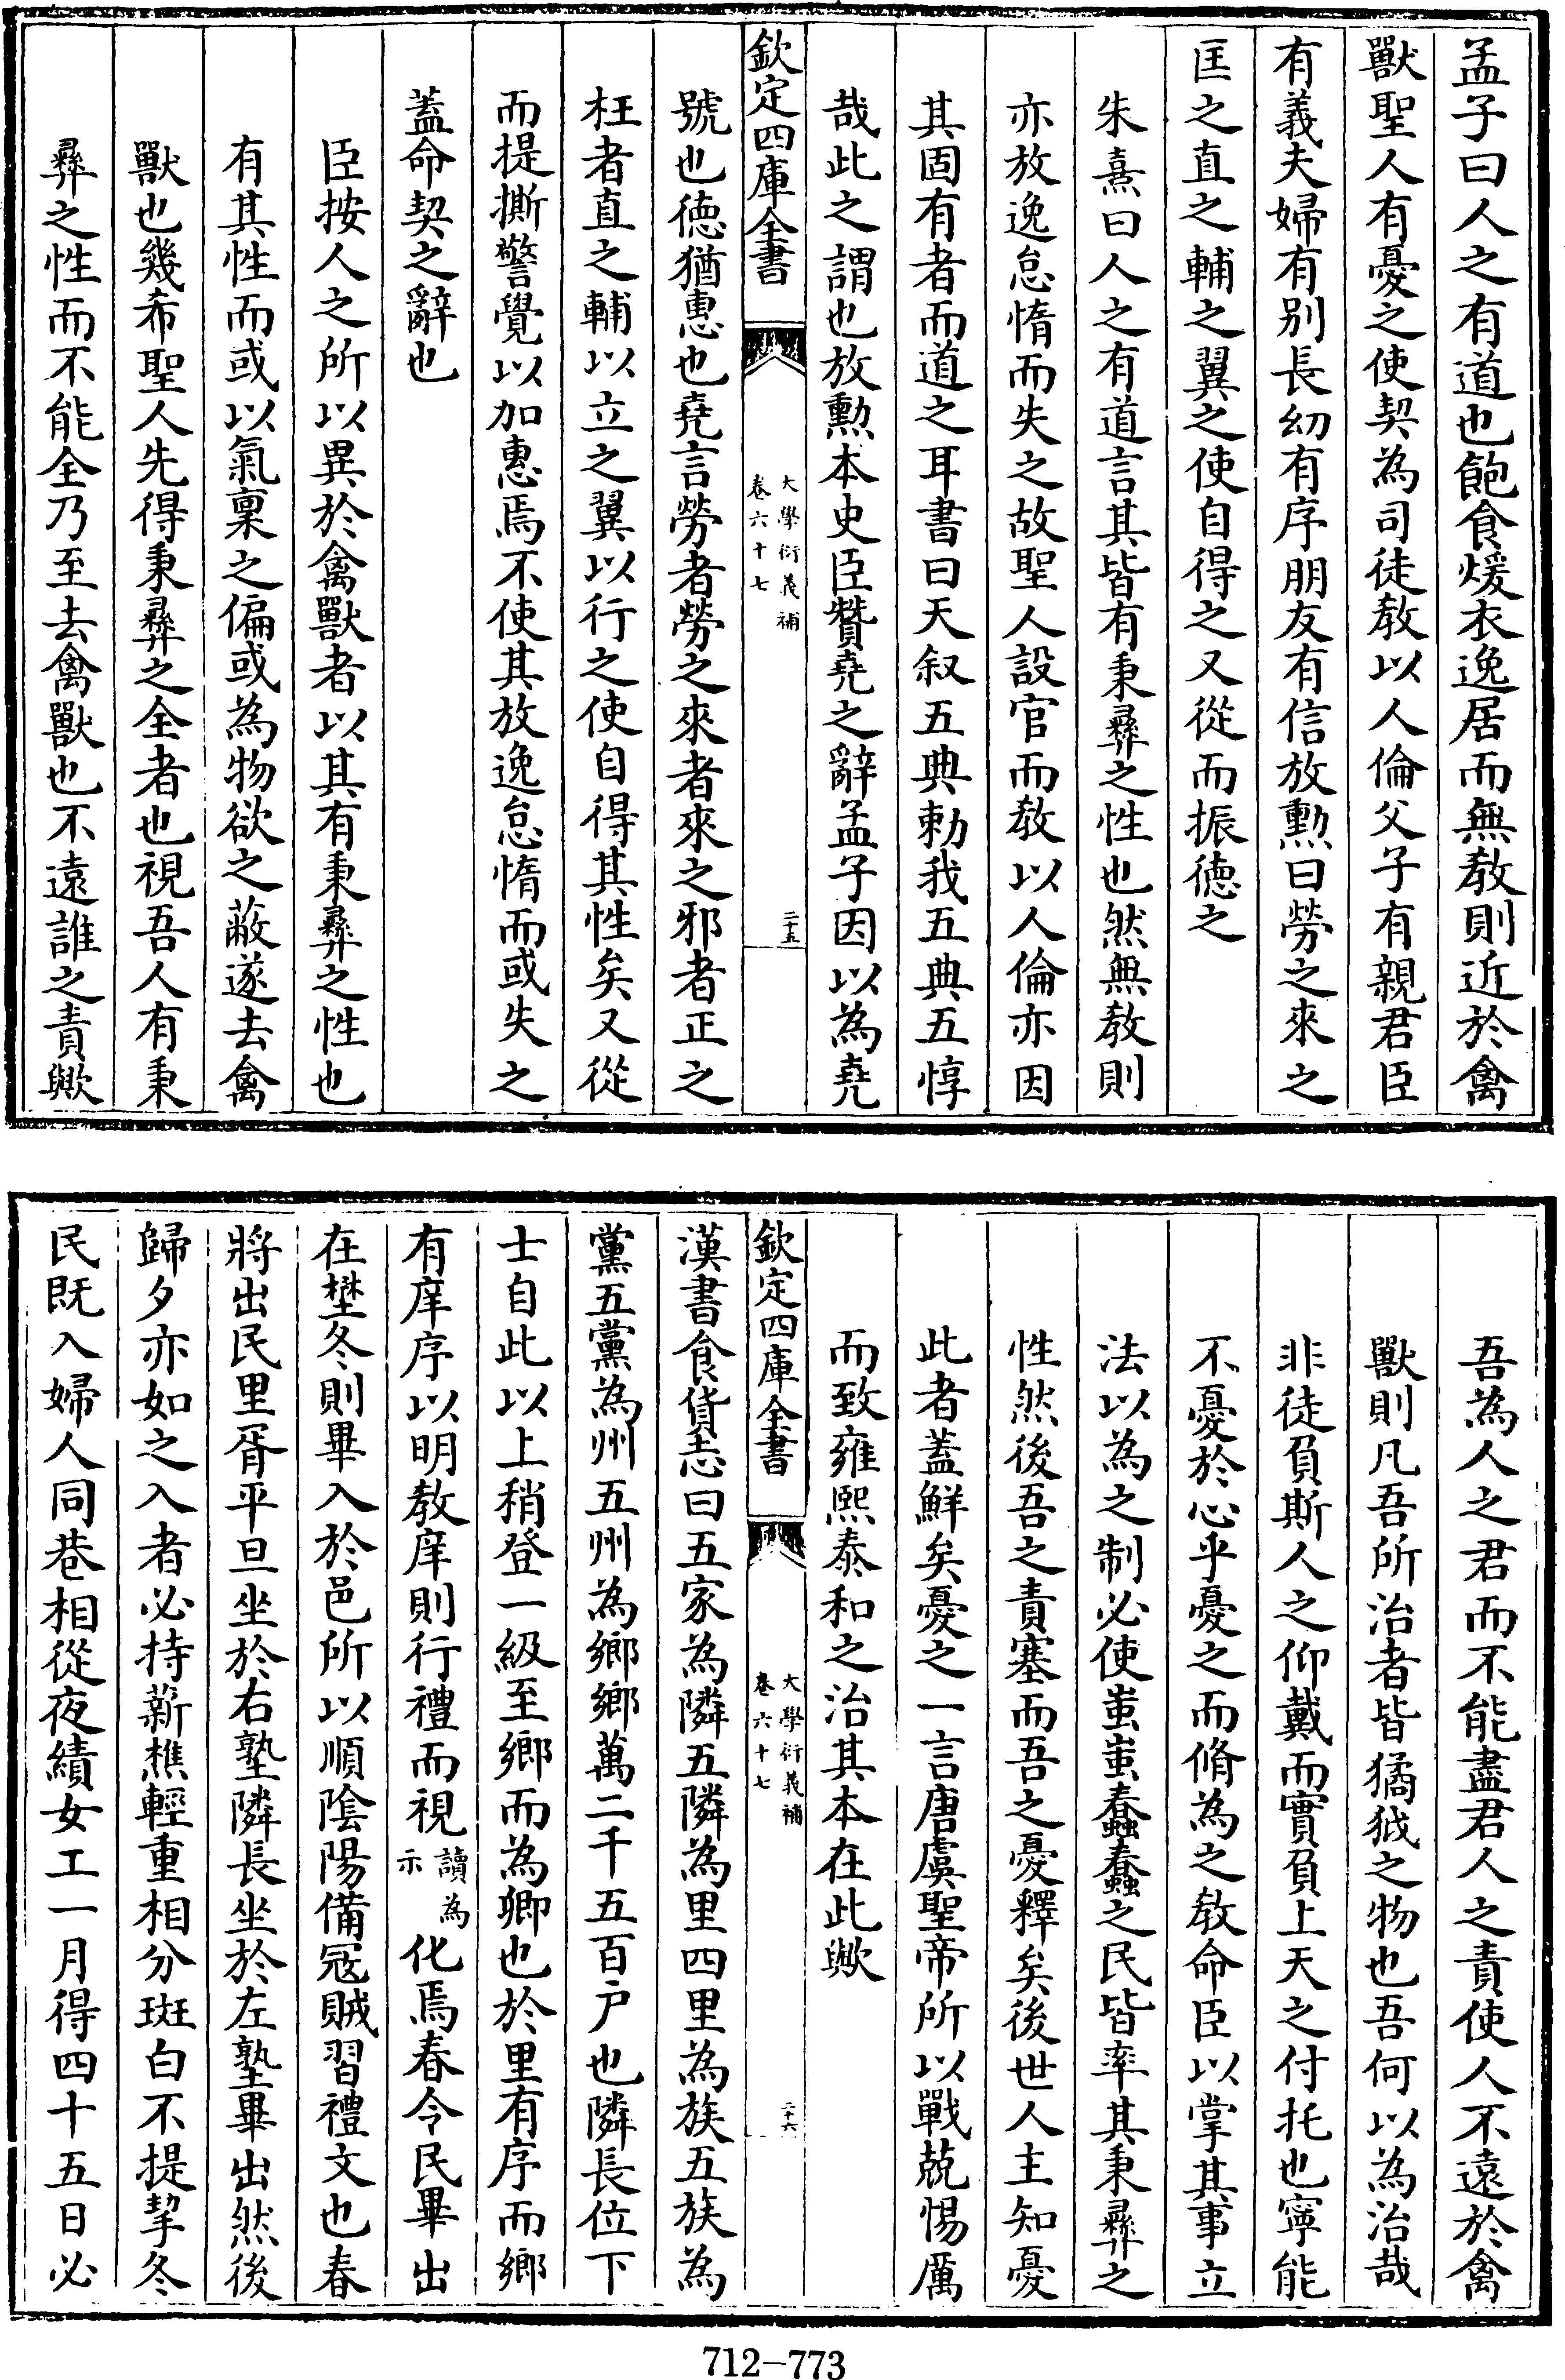 孟子曰人之有道也飽食煖衣逸居而無教則近於禽
獸聖人有憂之使契為司徒教以人倫父子有親君臣
有義夫婦有别長幼有序朋友有信放勲曰勞之來之
匡之直之輔之翼之使自得之又從而振德之
朱熹曰人之有道言其皆有秉彞之性也然無教則
亦放逸怠惰而失之故聖人設官而教以人倫亦因
其固有者而道之耳書曰天叙五典勅我五典五惇
哉此之謂也放勲本史臣贊堯之辭孟子因以為堯
欽定四庫全書
大學衍義補
卷六十七
二十五
號也德猶惠也堯言勞者勞之來者來之邪者正之
枉者直之輔以立之翼以行之使自得其性矣又從
而提撕警覺以加惠焉不使其放逸怠惰而或失之
蓋命契之辭也
臣按人之所以異於禽獸者以其有秉彞之性也
有其性而或以氣禀之偏或為物欲之蔽遂去禽
獸也幾希聖人先得秉彞之全者也視吾人有秉
彞之性而不能全乃至去禽獸也不遠誰之責歟
吾為人之君而不能盡君人之責使人不遠於禽
獸則凡吾所治者皆獝狘之物也吾何以為治哉
非徒負斯人之仰戴而實負上天之付托也寧能
不憂於心乎憂之而脩為之教命臣以掌其事立
法以為之制必使蚩蚩蠢蠢之民皆率其秉彞之
性然後吾之責塞而吾之憂釋矣後世人主知憂
此者蓋鮮矣憂之一言唐虞聖帝所以戰兢惕厲
而致雍熙泰和之治其本在此歟
欽定四庫全書
大學衍義補
卷六十七
二十六
漢書食貨志曰五家為隣五隣為里四里為族五族為
黨五黨為州五州為鄉鄉萬二千五百户也隣長位下
士自此以上稍登一級至鄉而為卿也於里有序而鄉
有庠序以明教庠則行禮而視讀為示化焉春令民畢出
在埜冬則畢入於邑所以順隂陽備冦賊習禮文也春
將出民里胥平旦坐於右塾隣長坐於左塾畢出然後
歸夕亦如之入者必持薪樵輕重相分斑白不提挈冬
民既入婦人同巷相從夜績女工一月得四十五日必
712-773